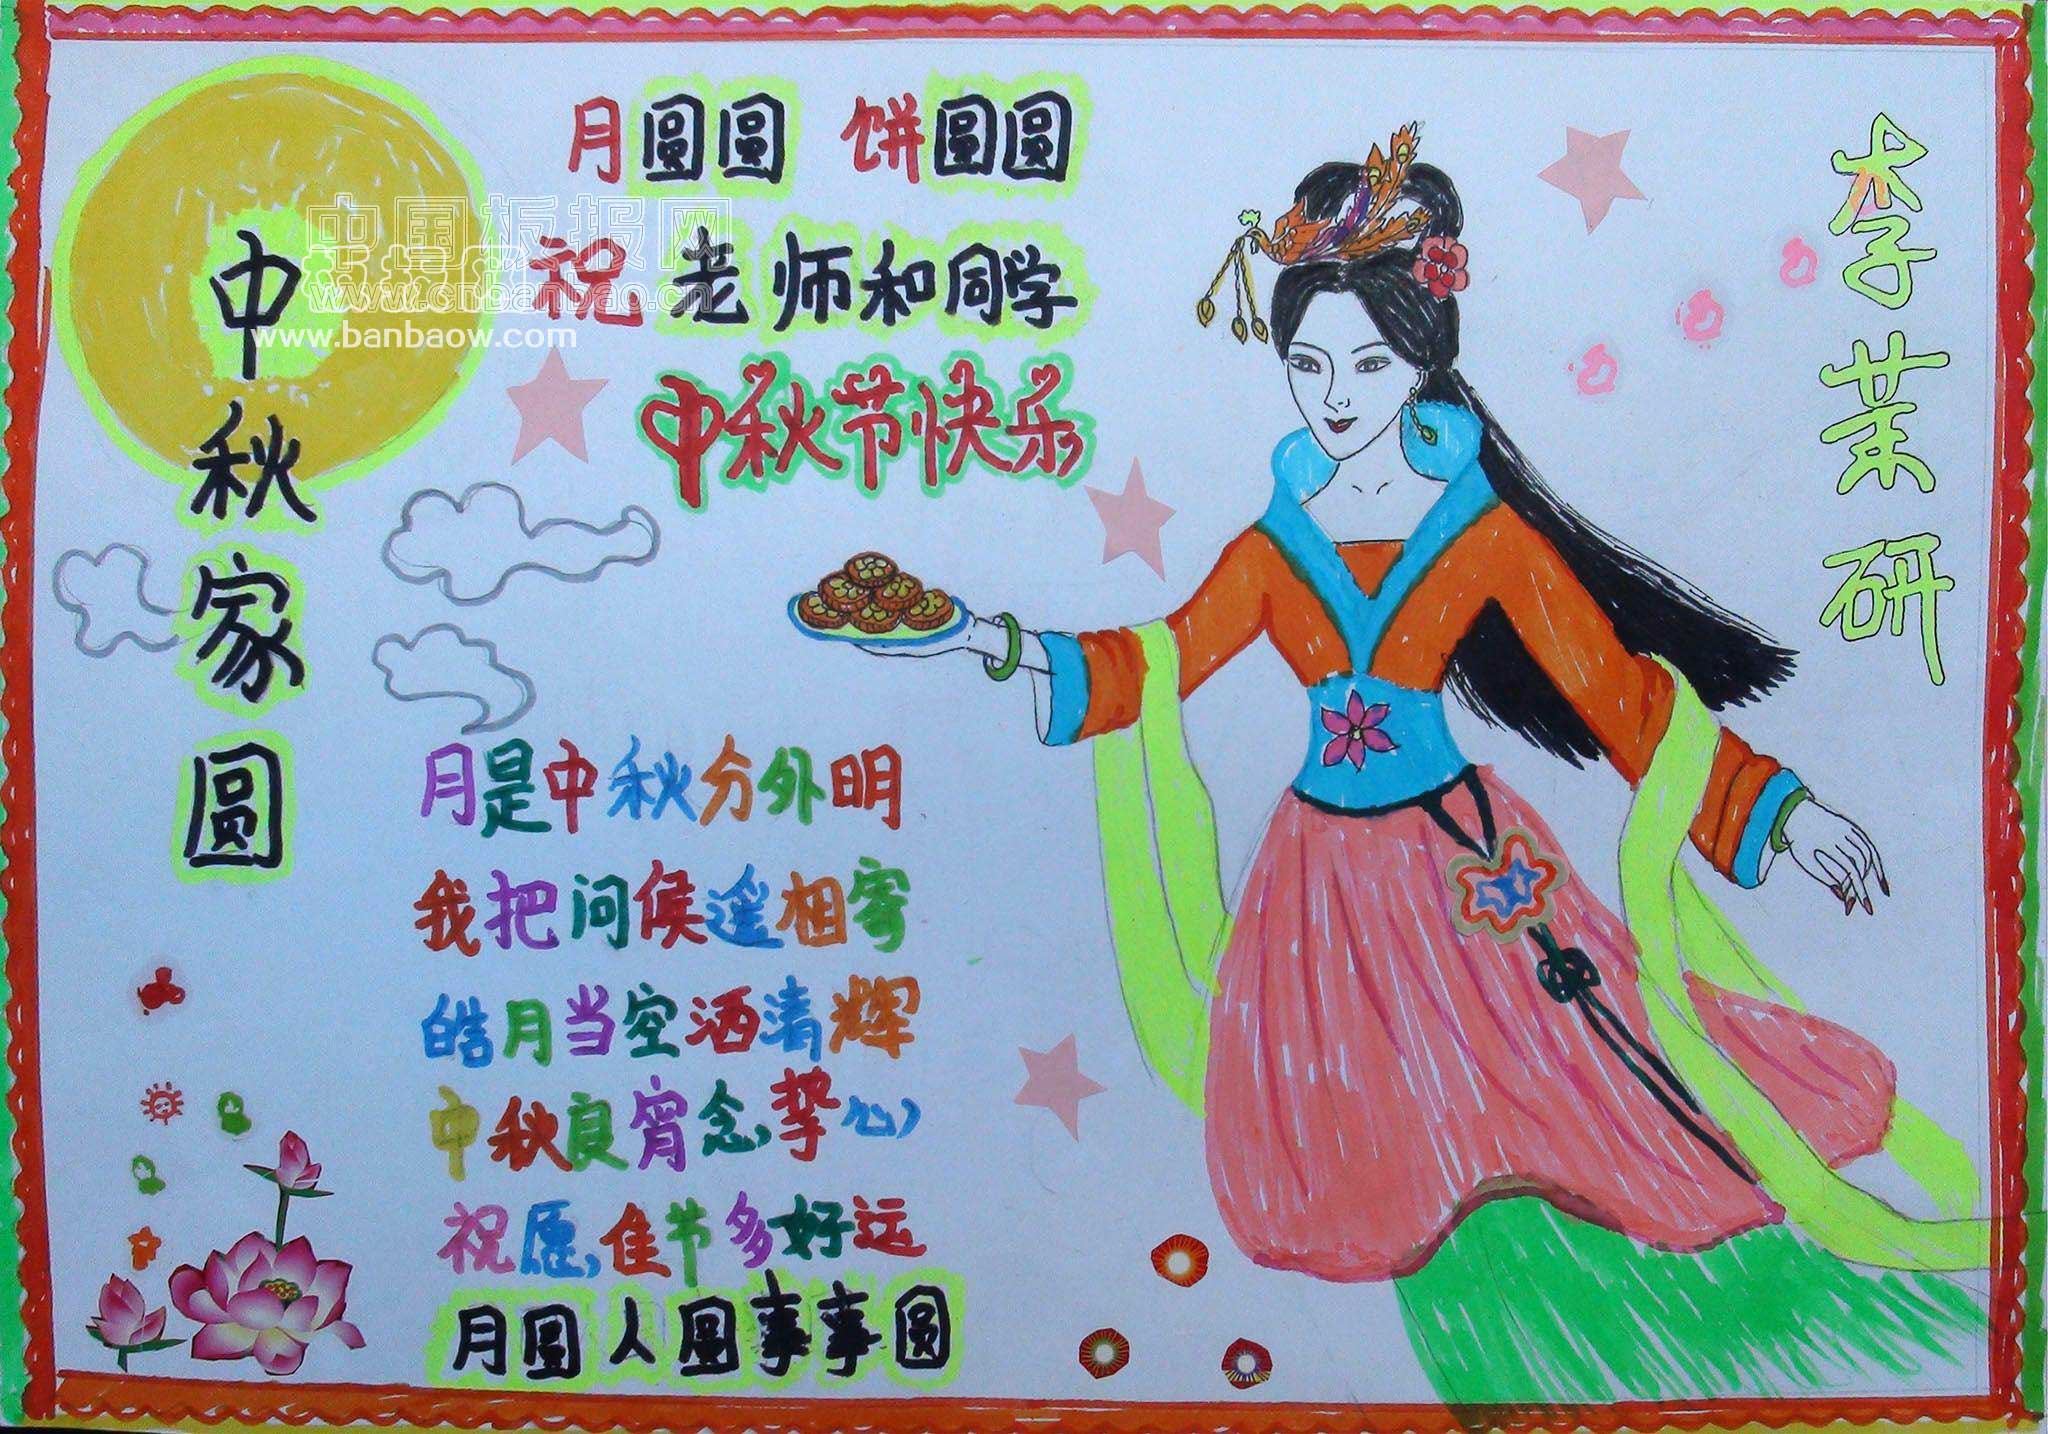 月圆圆 饼圆圆
祝老师和同学
中秋节快乐
中秋家圆
月是中秋分外明
我把问候遥相寄
皓月当空洒清辉
中秋良宵念挚心
祝愿佳节多好运
月圆人圆事事圆
李茉研
中国板报网
www.cnbanbao.cn
www.banbaow.com